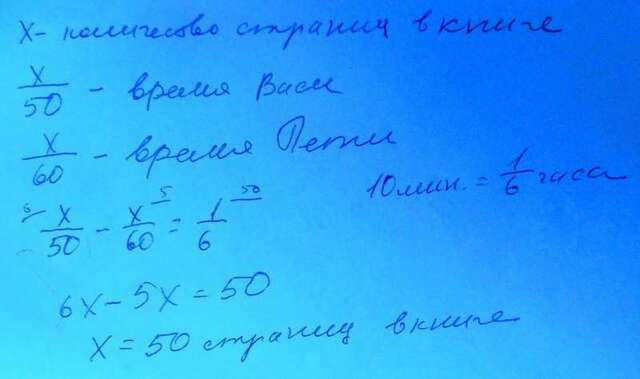 X - количество страниц в книге
X/50 - время Васи
X/60 - время Пети
10 мин. = 1/6 часа
6 X/50 - X/60 5 = 1/6 50
6X - 5X = 50
X = 50 страниц в книге